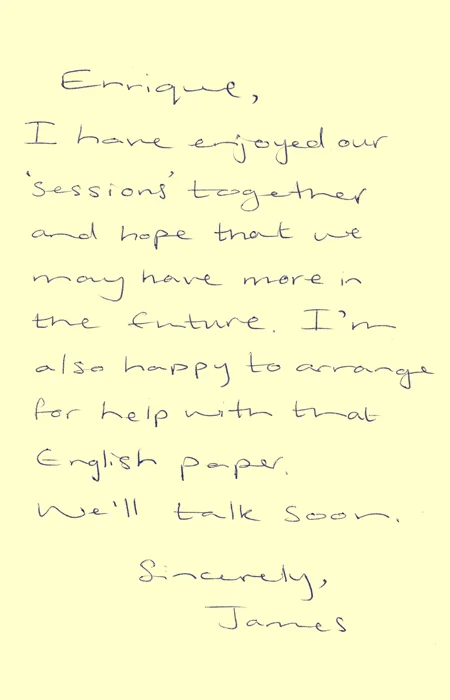 Enrique,
I have enjoyed our
'sessions' together
and hope that we
may have more in
the future. I'm
also happy to arrange
for help with that
English paper.
We'll talk soon.
Sincerely,
James